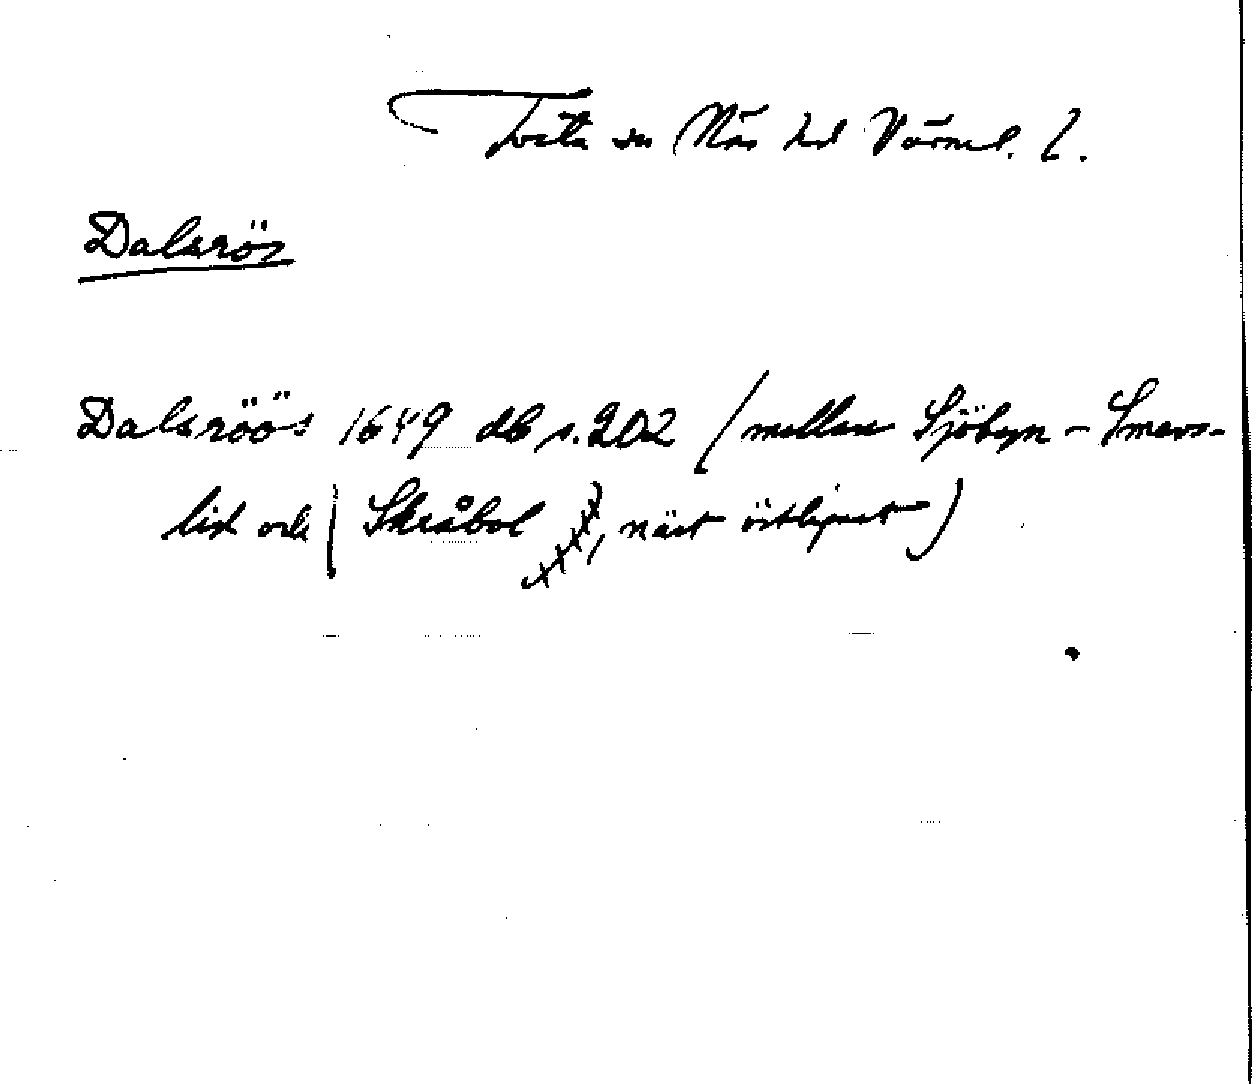 Tveta sn Näs hd Värml. l.
Dalsrös
Dalsröös 1649 db s. 202 (mellan Sjöbyn - Smevs-
lid och Skråbol, näst östligast)